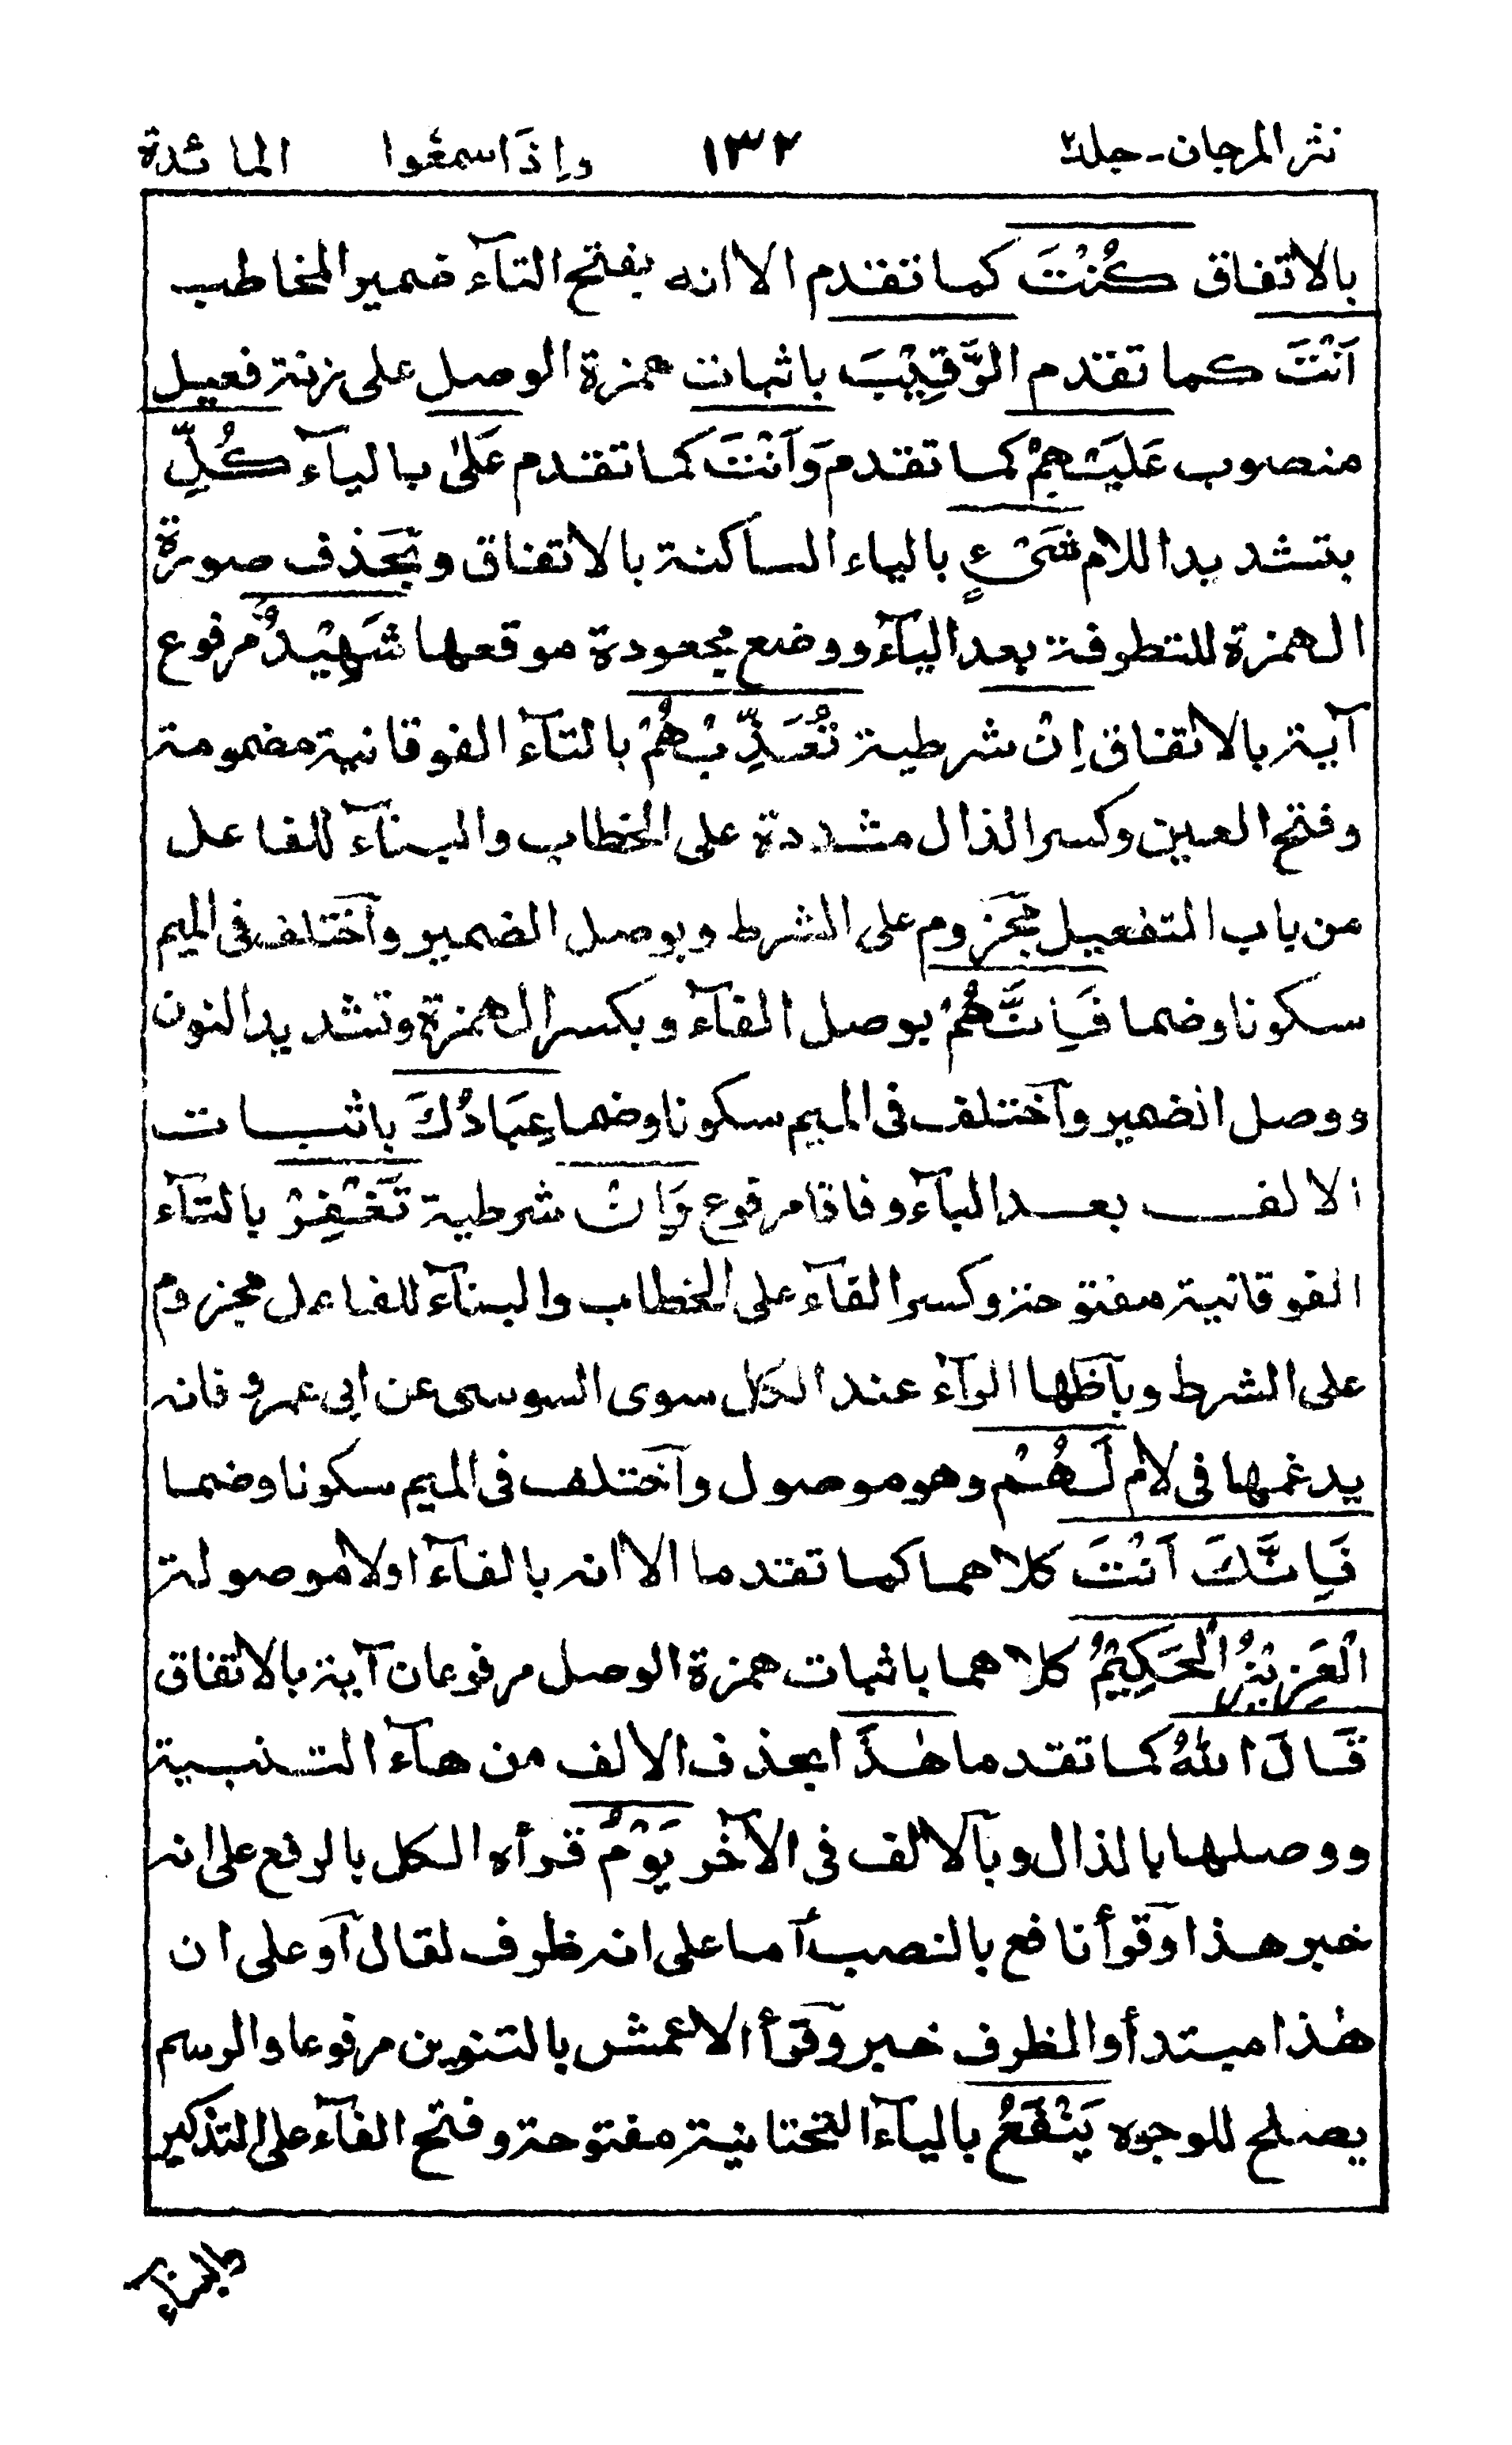 نثر المرجان - جلد٢ ١٣٢ واذا سمعوا المائدة
بالاتفاق كُنْتَ كما تقدم الا انه بفتح التآء ضمير المخاطب
اَنْتَ كما تقدم الرَّقِيْبَ باثبات همزة الوصل على زنة فعيل
منصوب عَلَيْهِمْ كما تقدم وَاَنْتَ كما تقدم عَلىٰ بالياء كُلِّ
بتشديد اللام شَىْءٍ بالياء الساكنة بالاتفاق وبحذف صورة
الهمزة المتطرفة بعد اليآء ووضع مجعودة موقعها شَهِيْدٌ مرفوع
آية بالاتفاق اِنْ شرطية تُعَذِّبْهُمْ بالتآء الفوقانية مضمومة
وفتح العين وكسر الذال مشددة على الخطاب والبنآء للفاعل
من باب التفعيل مجزوم على الشرط وبوصل الضمير وآختلف فى الميم
سكونا وضما فَاِنَّهُمْ بوصل الفآء وبكسر الهمزة وتشديد النون
ووصل الضمير وآختلف فى الميم سكونا وضما عِبَادُكَ باثبات
الالف بعد البآء وفاقا مرفوع وَاِنْ شرطية تَغْفِرْ بالتآء
الفوقانية مفتوحة وكسر الفآء على الخطاب والبنآء للفاعل مجزوم
على الشرط وبآظهار الرآء عند الكل سوى السوسى عن ابى عمرو فانه
يدغمها فى لام لَهُمْ وهو موصول وآختلف فى الميم سكونا وضما
فَاِنَّكَ اَنْتَ كلاهما كما تقدما الا انه بالفآء اولا موصولة
الْعَزِيْزُ الْحَكِيْمُ كلاهما باثبات همزة الوصل مرفوعان آية بالاتفاق
قَالَ اللهُ كما تقدما هٰذَا بحذف الالف من هآء التنبية
ووصلها بالذال وبآلالف فى الآخر يَوْمُ قرأه الكل بالرفع على انه
خبر هذا وقرأ نافع بالنصب أما على انه ظرف لقال آو على ان
هٰذا مبتدأ والظرف خبر وقرأ الاعمش بالتنوين مرفوعا والرسم
يصلح للوجوه يَنْفَعُ باليآء التحتانية مفتوحة وفتح الفآء على التذكير